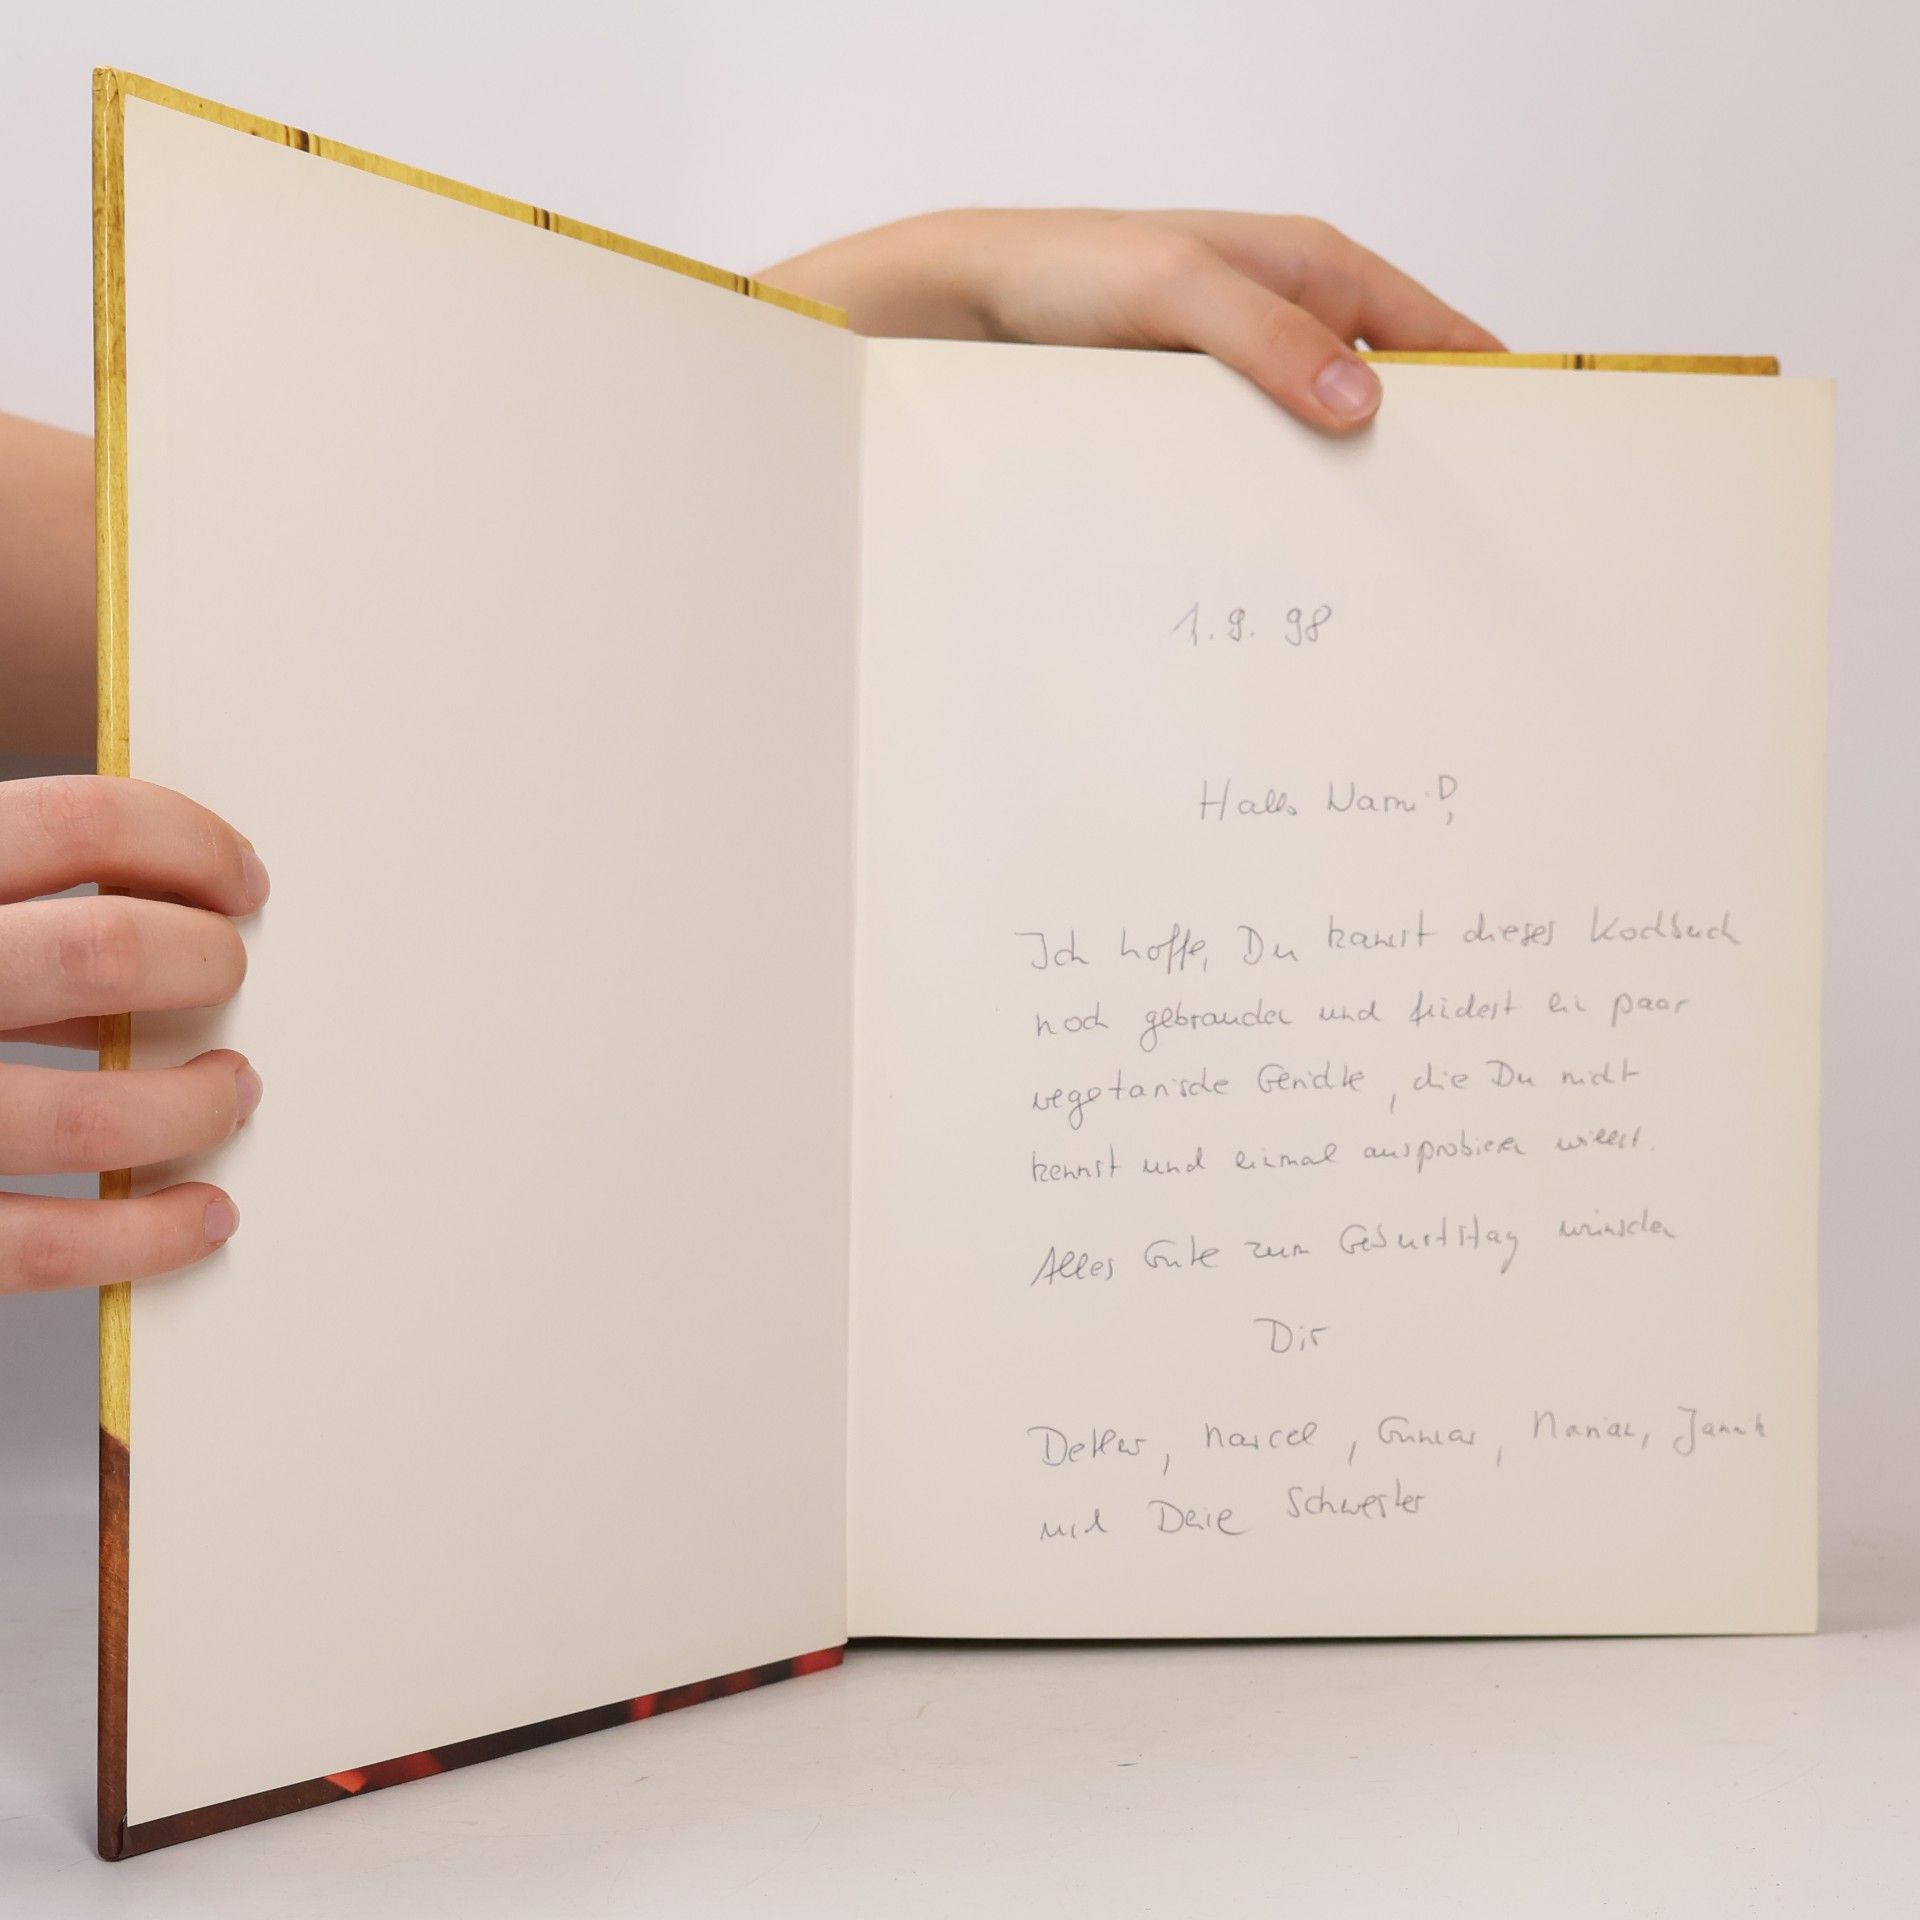 1. 9. 98
Hallo
Ich hoffe, Du kannst dieses Kochbuch
noch gebrauchen und findest ein paar
vegetarische Gerichte, die Du nicht
kennst und einmal ausprobieren willst.
Alles Gute zum Geburtstag wünschen
Dir
Detlev, Marcel, Gunnar,
und Deine Schwester